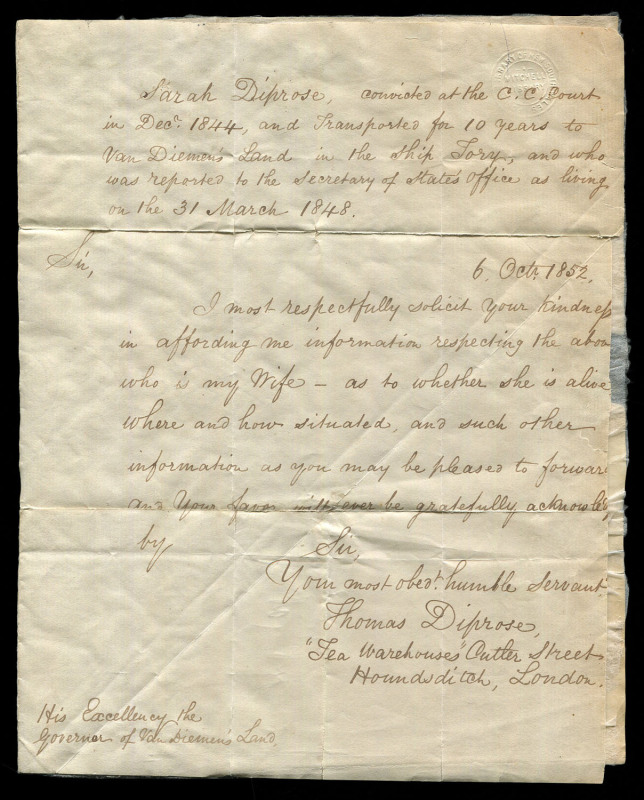 Sarah Diprose, convicted at the C. C. Court
in Decr. 1844, and Transported for 10 years to
Van Diemen's Land in the Ship Tory, and who
was reported to the Secretary of State's Office as living
on the 31 March 1848.
Sir,
6. Octr. 1852.
I most respectfully solicit Your Kindness
in affording me information respecting the abov
who is my Wife – as to whether she is alive
where and how situated, and such other
information as you may be pleased to forwar
and Your favor will ever be gratefully acknowledg
by Sir,
Your most obedt. humble Servant
Thomas Diprose,
"Tea Warehouses" Cutler Street
Houndsditch, London.
His Excellency the
Governor of Van Diemen's Land,